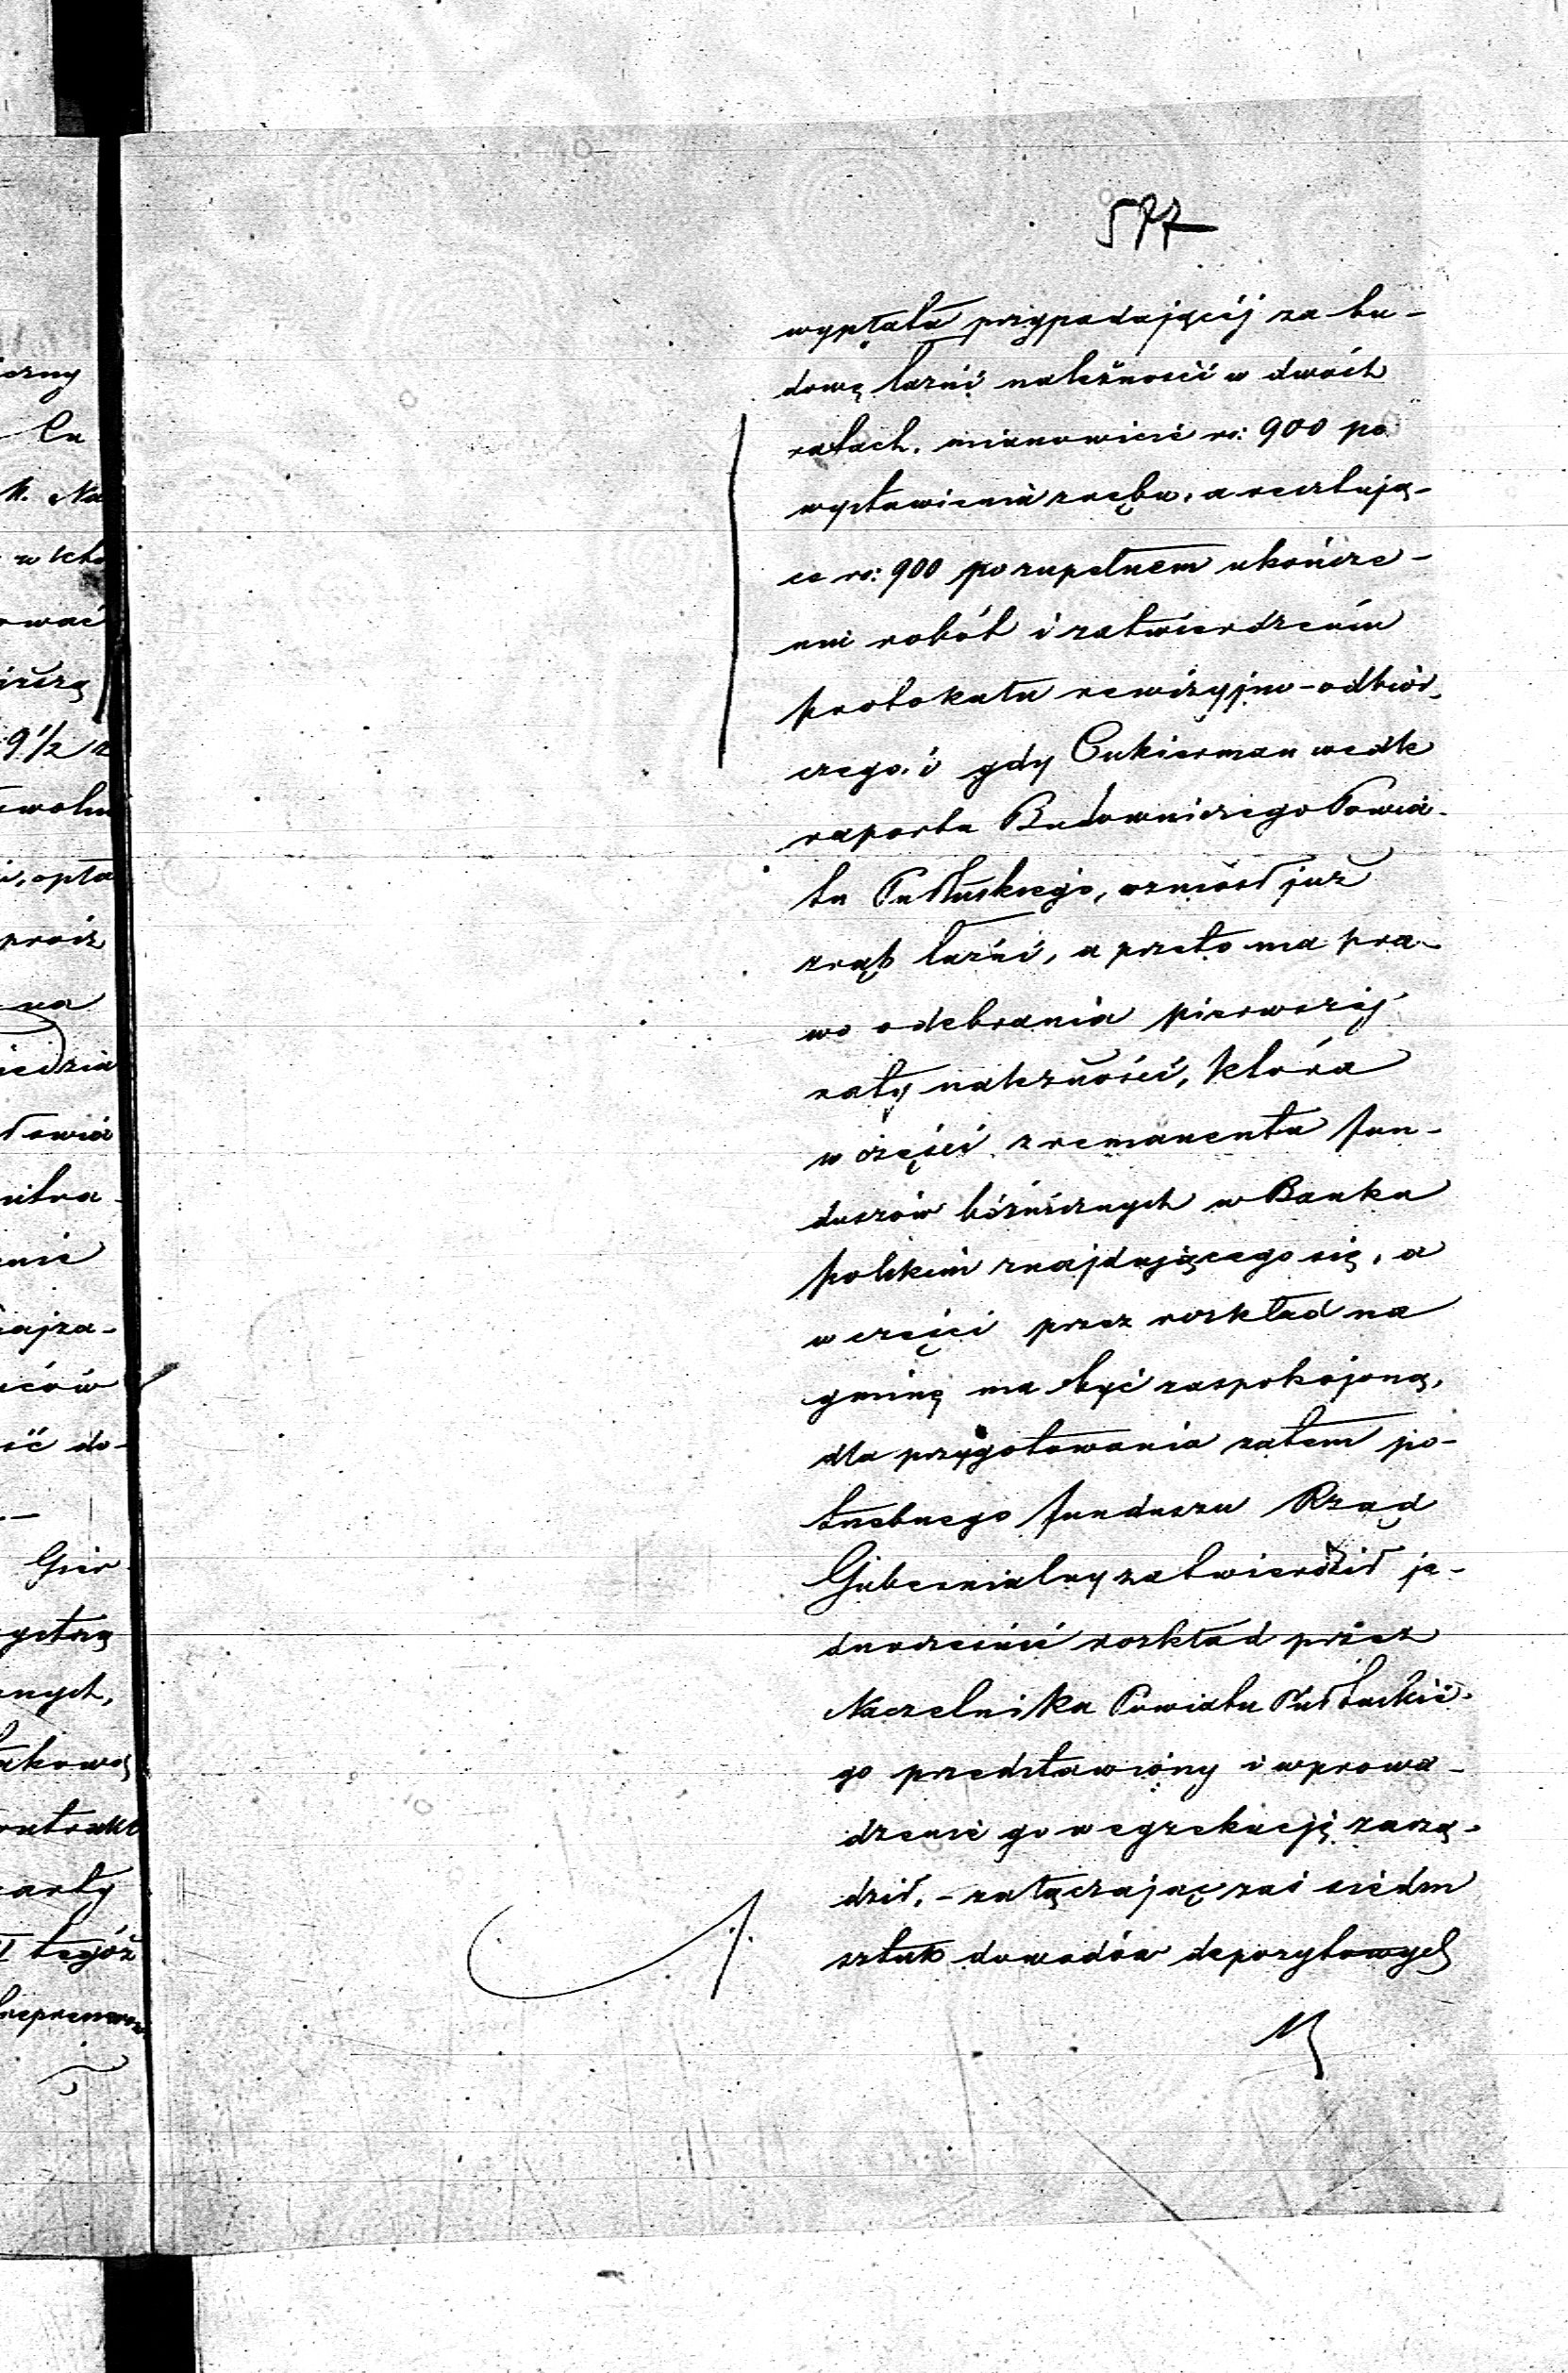 577
wypłata przypadającéj za bu-
dowę łaźni należności w dwóch
ratach, mianowicie rs: 900 po
wystawieniu zrębu, a resztują-
ce rs: 900 po zupełnem ukończe-
niu robót i zatwierdzeniu
protokułu rewizyjno-odbior-
czego, i gdy Cukierman wedle
raportu Budowniczego Powia-
tu Pułtuskiego, wzniósł już
zrąb łaźni, a przeto ma pra-
wo odebrania pierwszéj
raty należności, która
w części z remanentu fun-
duszów bóźniczych w Banku
polskim znajdującego się, a
w części przez rozkład na
gminę ma być zaspokojoną,
dla przygotowania zatem po-
trzebnego funduszu Rząd
Gubernialny zatwierdził je-
dnocześnie rozkład przez
Naczelnika Powiatu Pułtuskie-
go przedstawiony i wprowa-
dzenie go w egzekucję zarzą-
dził, - załączając zaś siedm
sztuk dowodów depozytowych
czny
Cu
K. Na
ować
9 1/2
opła
na
iedzia
nie
ców
do-
-
nych,
takową
arty
tegóż